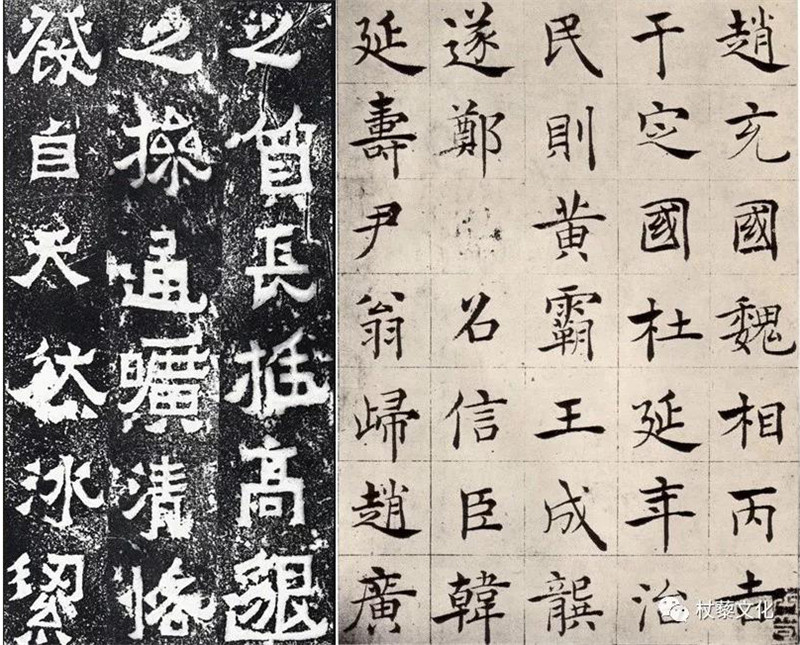 趙充國魏相丙吉
于定國杜延年治
民則黃霸王成龔
遂鄭召信臣韓
延壽尹翁歸趙廣
之質長挺高邈
之操通曠清恪
發自天然冰潔
杖藜文化